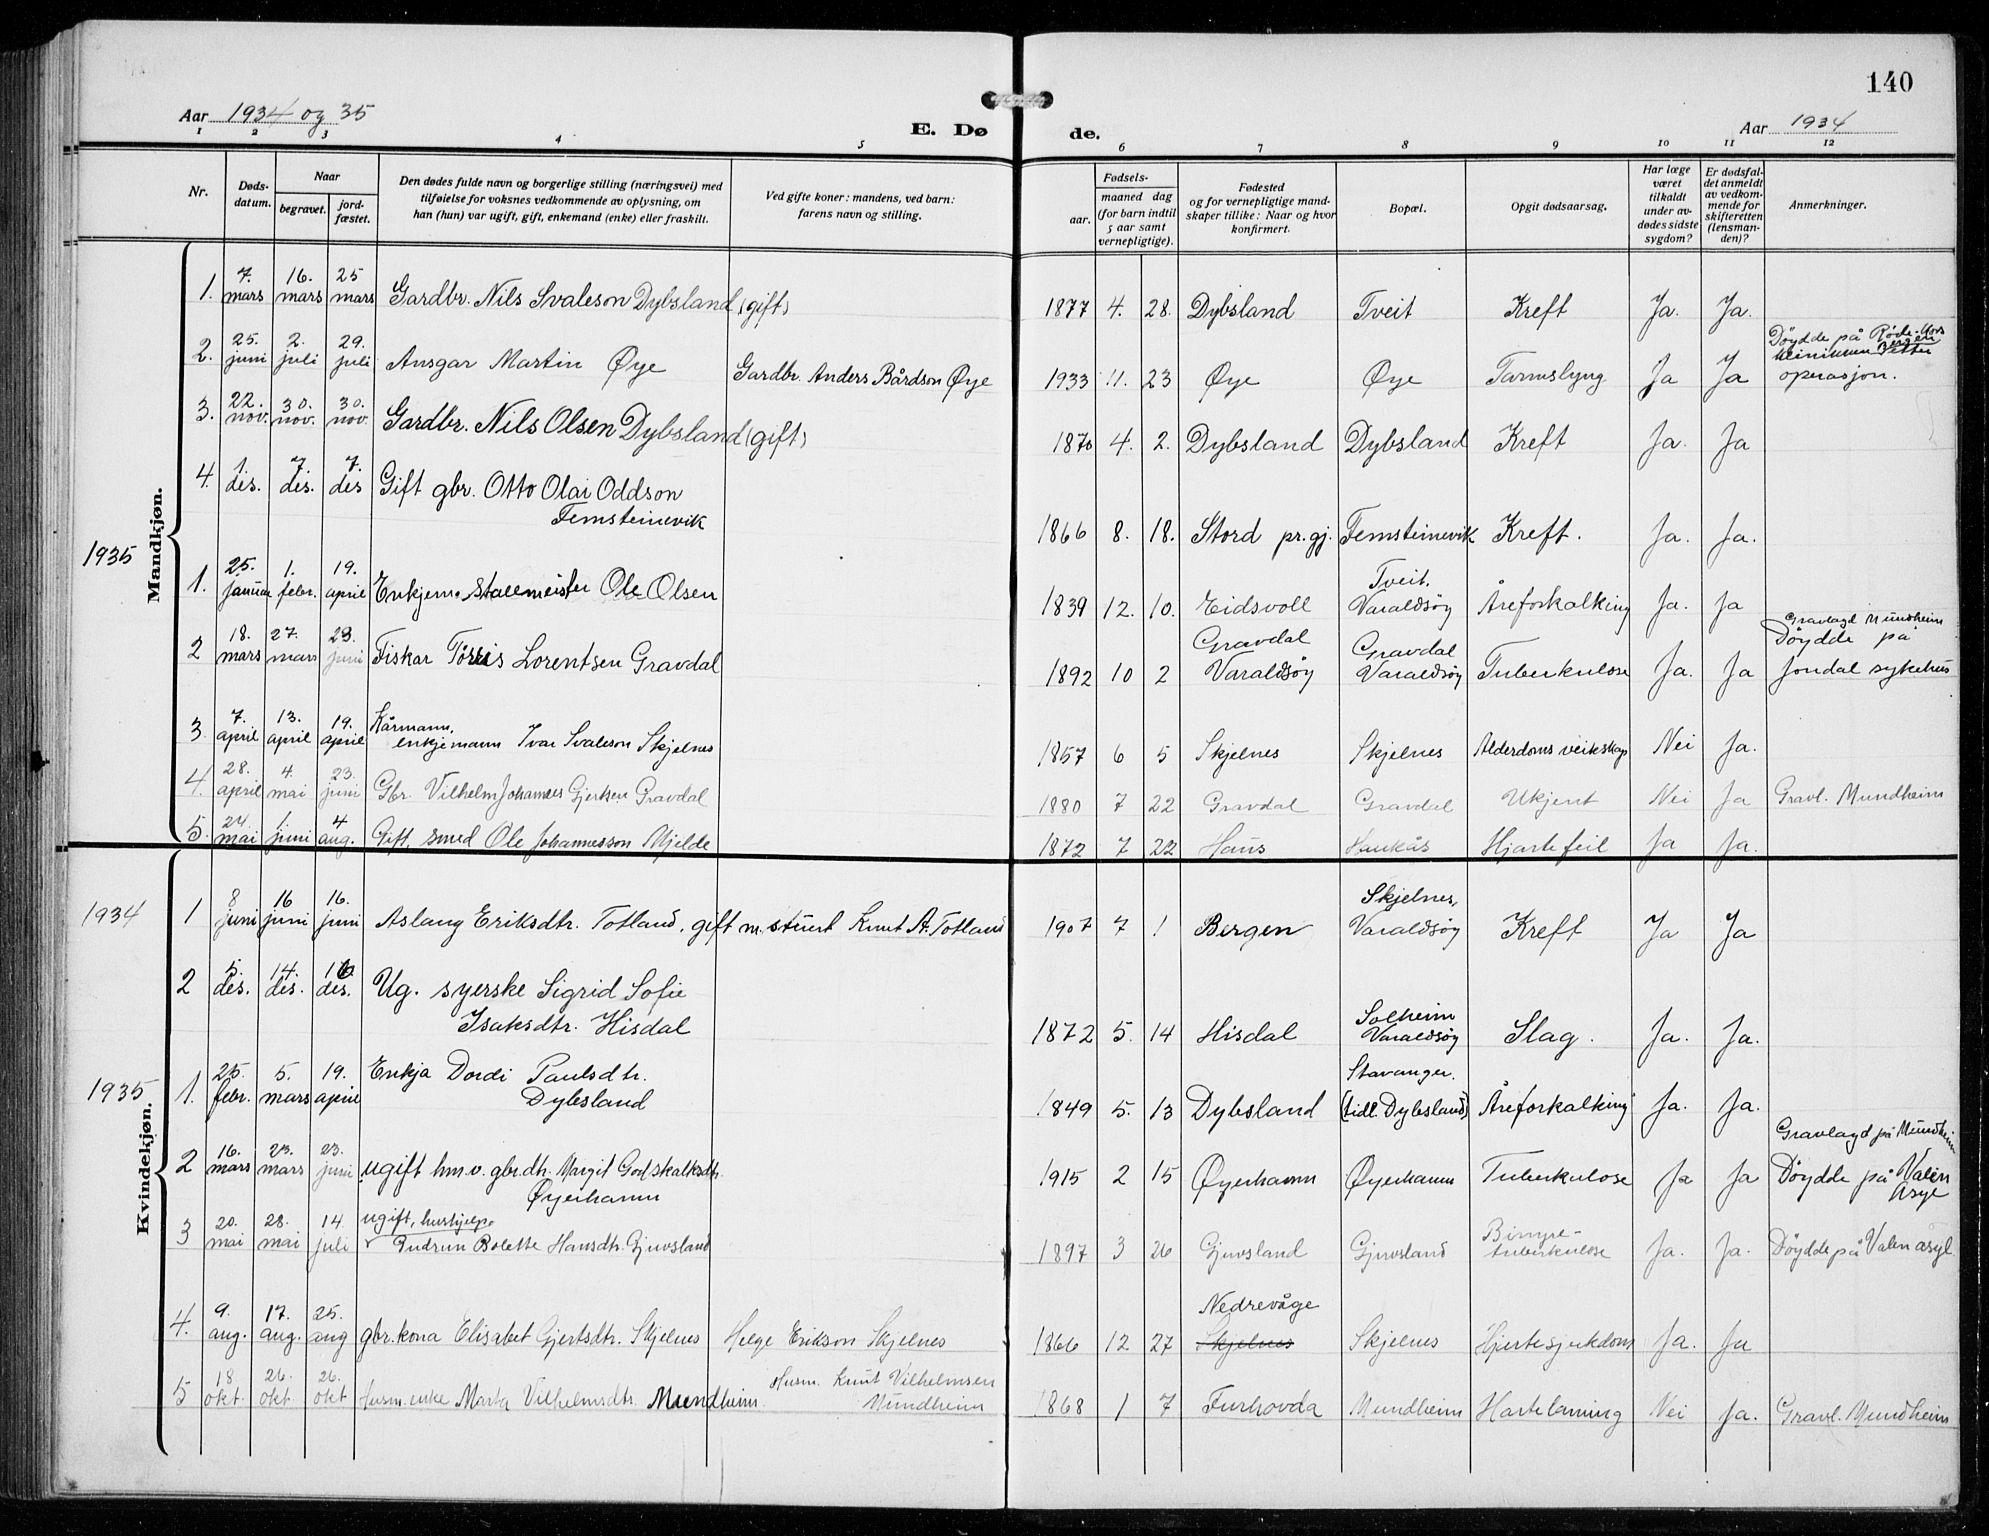 140
Aar 1934 og 35
E. Dø de.
Aar 1934
1 2 3 4 5 6 7 8 9 10 11 12
Nr.
Døds-
datum.
Naar
begravet.
jord-
fæstet.
Den dødes fulde navn og borgerlige stilling (næringsvei) med
tilføielse for voksnes vedkommende av oplysning, om
han (hun) var ugift, gift, enkemand (enke) eller fraskilt.
Ved gifte koner: mandens, ved barn:
farens navn og stilling.
Fødsels-
aar.
maaned dag
(for barn indtil
5 aar samt
vernepligtige).
Fødested
og for vernepligtige mand-
skaper tillike: Naar og hvor
konfirmert.
Bopæl.
Opgit dødsaarsag.
Har læge
været
tilkaldt
under av-
dødes sidste
sygdom?
Er dødsfal-
det anmeldt
av vedkom-
mende for
skifteretten
(lensman-
den)?
Anmerkninger.
Mandkjøn.
1. 7. mars 16. mars 25 mars Gardbr. Nils Svaleson Dybsland (gift) 1877 4. 28. Dybsland Tveit Kreft Ja. Ja.
2. 25. juni 2. juli 29. juli Ansgar Martin Øye Gardbr. Anders Bårdson Øye 1933 11. 23 Øye Øye Tarmslyng Ja Ja Döydde på Röde-Kors
Bergen
operasjon.
3. 22. nov. 30. nov. 30. nov. Gardbr. Nils Olsen Dybsland (gift) 1870 4. 2. Dybsland Dybsland Kreft Ja. Ja
4. 1. des. 7. des. 7. des Gift gbr. Otto Olai Oddson
Femsteinevik 1866 8. 18. Stord pr.gj. Femsteinevik Kreft. Ja. Ja.
1935
1. 25. januar 1. febr. 19. april Enkjem. stallmeister Ole Olsen 1839 12. 10. Eidsvoll Tveit. Varaldsöy Åreforkalking Ja. Ja
2 18. mars 27. mars 23. juni Fiskar Torris Lorentsen Gravdal 1892 10 2 Gravdal Varaldsöy Gravdal Varaldsöy Tuberkulose Ja. Ja Gravlagd Mundheim
Döydde på
Jondal sykehus
3 7. april 13. april 19. april Kårmann,
enkjemann Ivar Svaleson Skjelnes 1857 6 5 Skjelnes Skjelnes Alderdoms veikskap Nei Ja.
4. 28. april 4. mai 23. juni Gbr. Vilhelm Johannes Gjerksen Gravdal 1880 7 22 Gravdal Gravdal Ukjent Nei Ja Gravl. Mundheim
5. 24. mai 1. juni 4 aug. Gift, smed Ole Johannesson Mjelde 1872 7 22 Haus Haukås Hjartefeil Ja Ja.
Kvindekjøn.
1934
1 8 juni 16 juni 16. juni Aslaug Eriksdtr. Totland, gift m. stuert Knut A. Totland 1907 7 1 Bergen Skjelnes, Varaldsöy Kreft Ja Ja
2 5. des. 14. des. 16. des. Ug. syerske Sigrid Sofie
Isaksdtr. Hisdal 1872 5. 14 Hisdal Solheim Varaldsöy Slag. Ja. Ja.
1935
1. 25. febr. 5. mars 19. april Enkja Dordi Paulsdtr.
Dybsland 1849 5. 13 Dybsland Stavanger. (tidl. Dybsland) Åreforkalking Ja. Ja.
2 16. mars 23. mars 23. juni ugift hm.v. gbr.dtr. Margit Godskalksdtr.
Øyerhamn 1915 2 15 Øyerhamn Øyerhamn Tuberkulose Ja Ja Gravlagd på Mundheim
Döydde på Valen
Asyl
3 20. mai 28. mai 14. juli ugift, hushjelp
Gudrun Bolette Hansdtr. Gjuvsland 1897 3 26 Gjuvsland Gjuvsland Binyre-
tuberkulose Ja. Ja. Döydde på Valen asyl
4. 9. aug. 17. aug. 25. aug gbr. kona Elisabet Gjertsdtr. Skjelnes Helge Erikson Skjelnes 1866 12 27 Nedrevåge
Skjelnes Skjelnes Hjertesjukdom Ja. Ja
5 18. okt. 26. okt. 26. okt Husm. enke Marta Vilhelmsdtr. Mundheim. Husm. Knut Vilhelmsen
Mundheim 1868 1 7 Furhovda Mundheim Hartelaming Nei Ja. Gravl. Mundheim